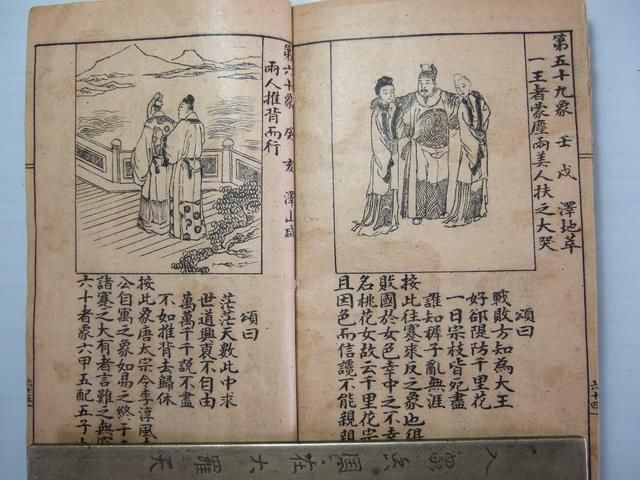 第五十九象 壬戌 澤地萃
一王者蒙塵兩美人扶之大哭
頌曰
戰敗方知為大王
好郤隄防千里花
一日宗枝皆死盡
誰知裤子亂無涯
按此往蹇來反之象也
敗國於女色幸中之不幸
名桃花女故云千里花宗
且因色而信讒不能親親
六十四
第六十象 癸亥 澤山咸
兩人推背而行
頌曰
茫茫天數此中求
世道興衰不自由
萬萬千千說不盡
不如推背去歸休
按此象唐太宗令李淳風
公自寓之象如易之終于
諸蹇之大有者言難之與
六十者象六甲五配五子
六十五